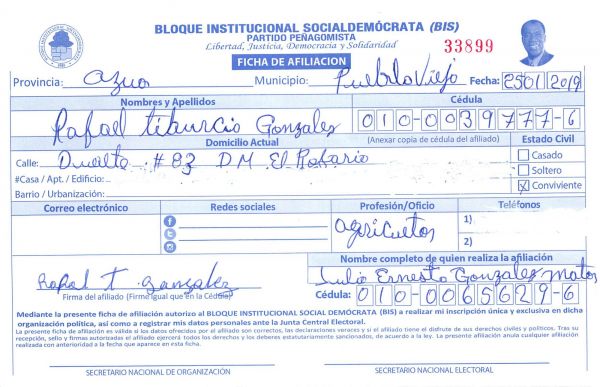 BLOQUE INSTITUCIONAL SOCIALDEMÓCRATA (BIS)
PARTIDO PEÑAGOMISTA
Libertad, Justicia, Democracia y Solidaridad
33899
FICHA DE AFILIACION
Provincia: Azua Municipio: Pueblo Viejo Fecha: 25 01 2019
Nombres y Apellidos Cédula
Rafael tiburcio Gonzalez 010-0039777-6
Domicilio Actual (Anexar copia de cédula del afiliado) Estado Civil
Calle: Duarte # 83 D M El Rosario Casado
#Casa / Apt. / Edificio: Soltero
Barrio / Urbanización: X Conviviente
Correo electrónico Redes sociales Profesión/Oficio Teléfonos
agricultor 1)
2)
Nombre completo de quien realiza la afiliación
Rafael T. Gonzalez Julio Ernesto Gonzalez matos
Firma del afiliado (Firme igual que en la Cédula) Cédula: 010-0065629-6
Mediante la presente ficha de afiliación autorizo al BLOQUE INSTITUCIONAL SOCIAL DEMÓCRATA (BIS) a realizar mi inscripción única y exclusiva en dicha
organización política, así como a registrar mis datos personales ante la Junta Central Electoral.
La presente ficha de afiliación es válida si los datos ofrecidos por el afiliado son correctos, las declaraciones veraces y si el afiliado tiene el disfrute de sus derechos civiles y políticos. Tras su
recepción, sello y firmas autorizadas el afiliado ejercerá todos los derechos y los deberes estatutariamente sancionados, de acuerdo a la ley. La presente afiliación anula cualquier afiliación
realizada con anterioridad a la fecha que aparece en esta ficha.
SECRETARIO NACIONAL DE ORGANIZACIÓN SECRETARIO NACIONAL ELECTORAL